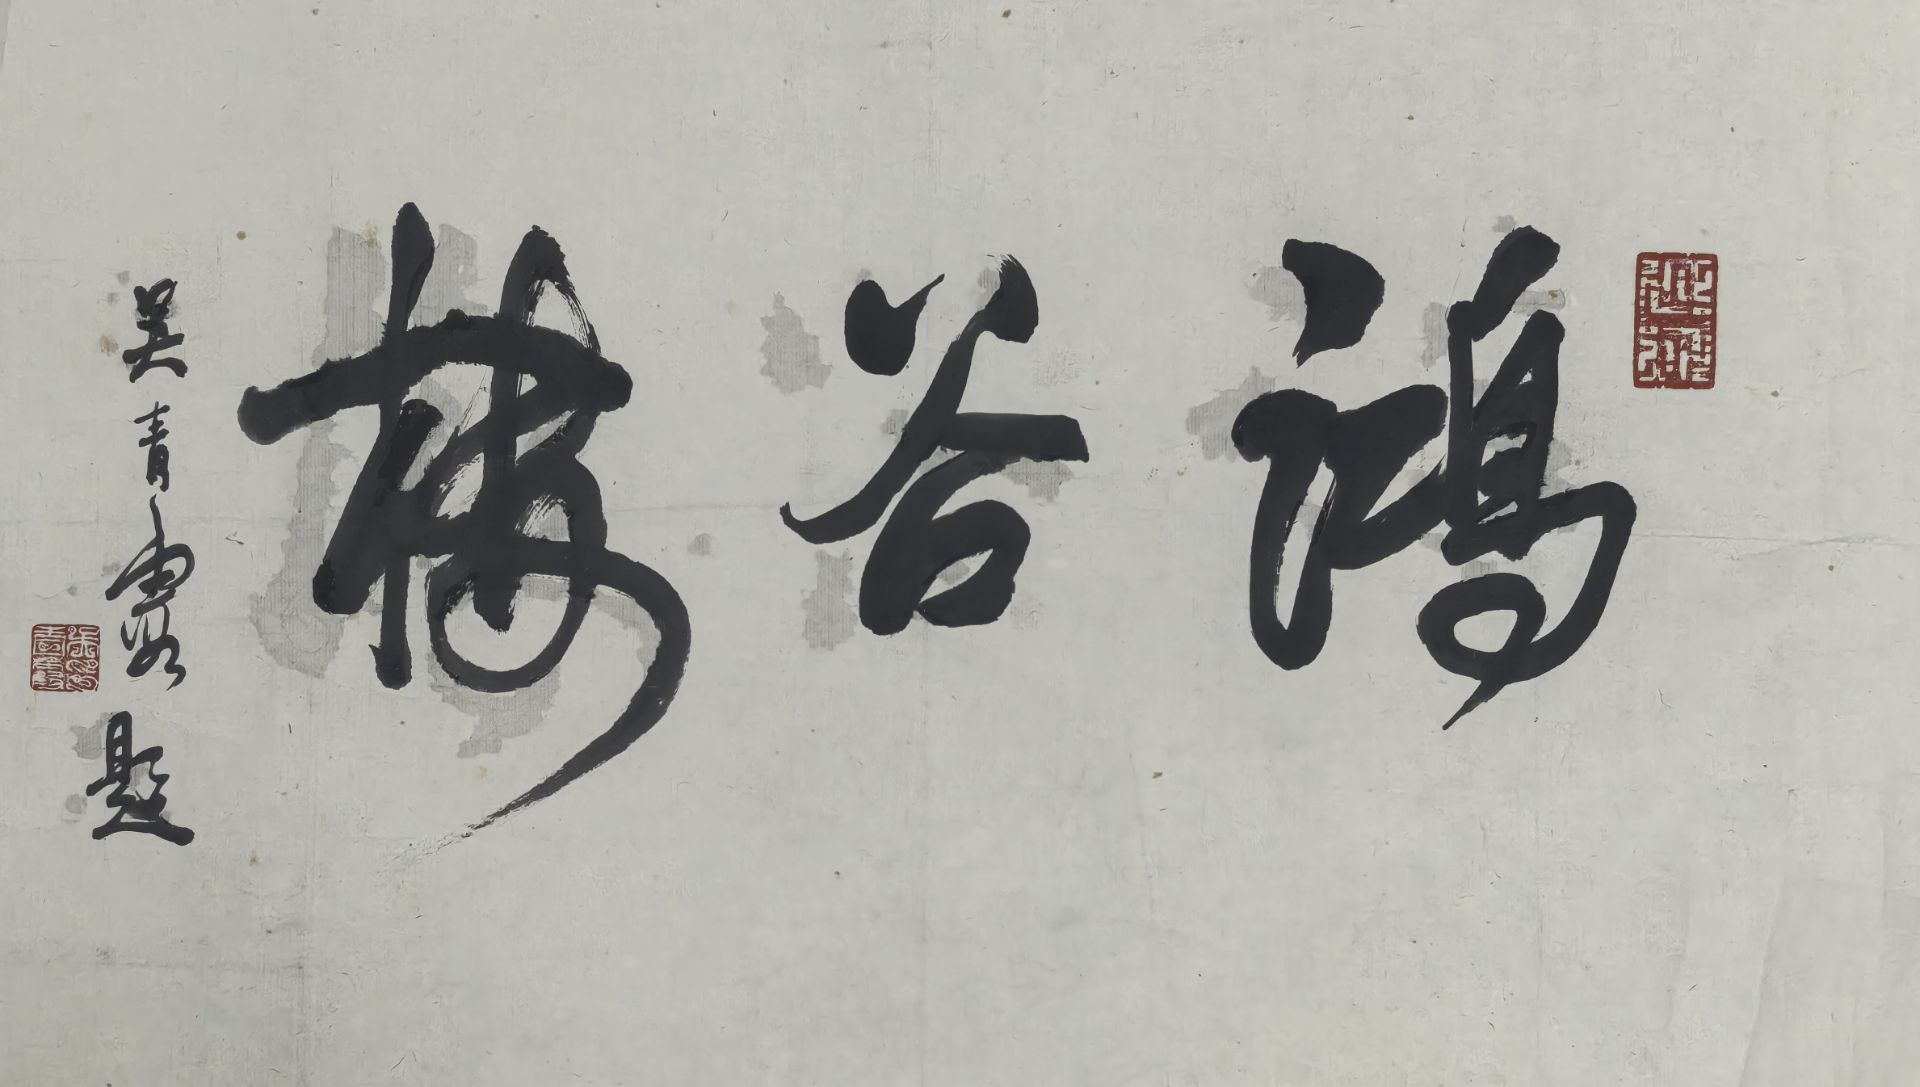 鴻谷樓
吴青霞題